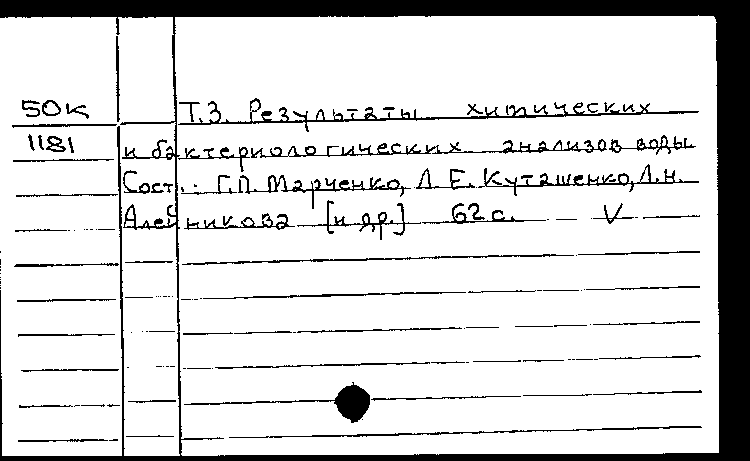 50к Т.3. Результаты химических
1181 и бактериологических анализов воды
Сост.: Г.П. Марченко, Л.Е. Куташенко, Л.Н.
Алейникова [и др.] 62 с. V